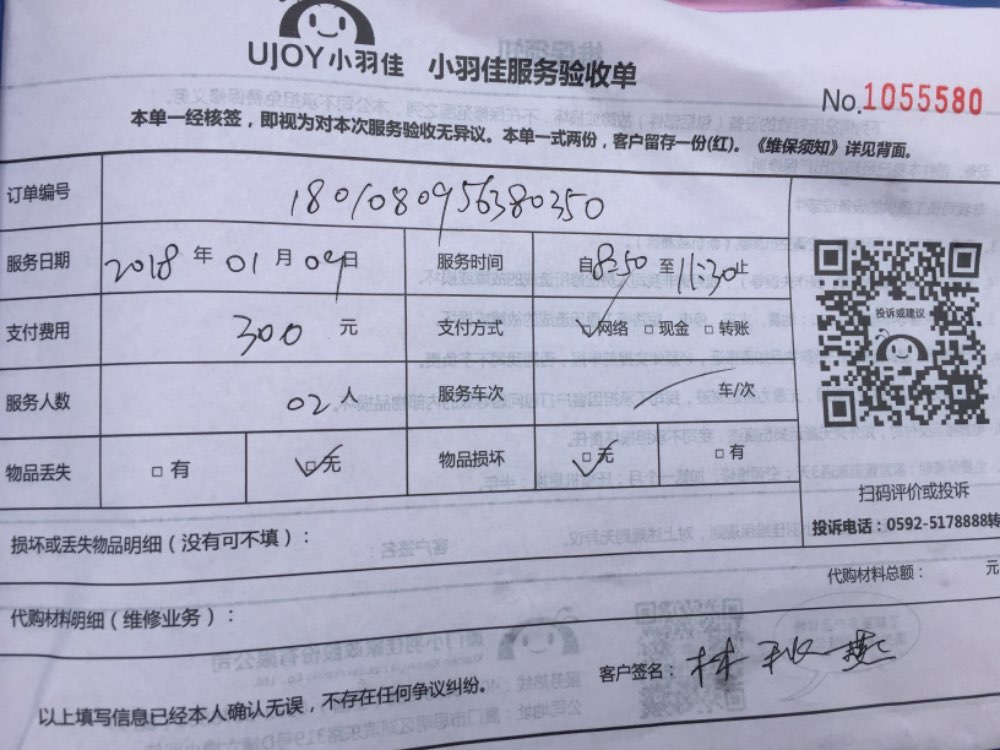 UJOY小羽佳 小羽佳服务验收单
No.1055580
本单一经核签，即视为对本次服务验收无异议。本单一式两份，客户留存一份(红)。《维保须知》详见背面。
订单编号 1801080956380350
服务日期 2018 年 01 月 09 日 服务时间 自 8:50 至 11:30 止
支付费用 300 元 支付方式 ☑网络 □现金 □转账
投诉或建议
服务人数 02 人 服务车次 车/次
物品丢失 □有 ☑无 物品损坏 ☑无 □有
扫码评价或投诉
投诉电话：0592-5178888转
损坏或丢失物品明细（没有可不填）：
代购材料总额： 元
代购材料明细（维修业务）：
客户签名：林秋燕
以上填写信息已经本人确认无误，不存在任何争议纠纷。